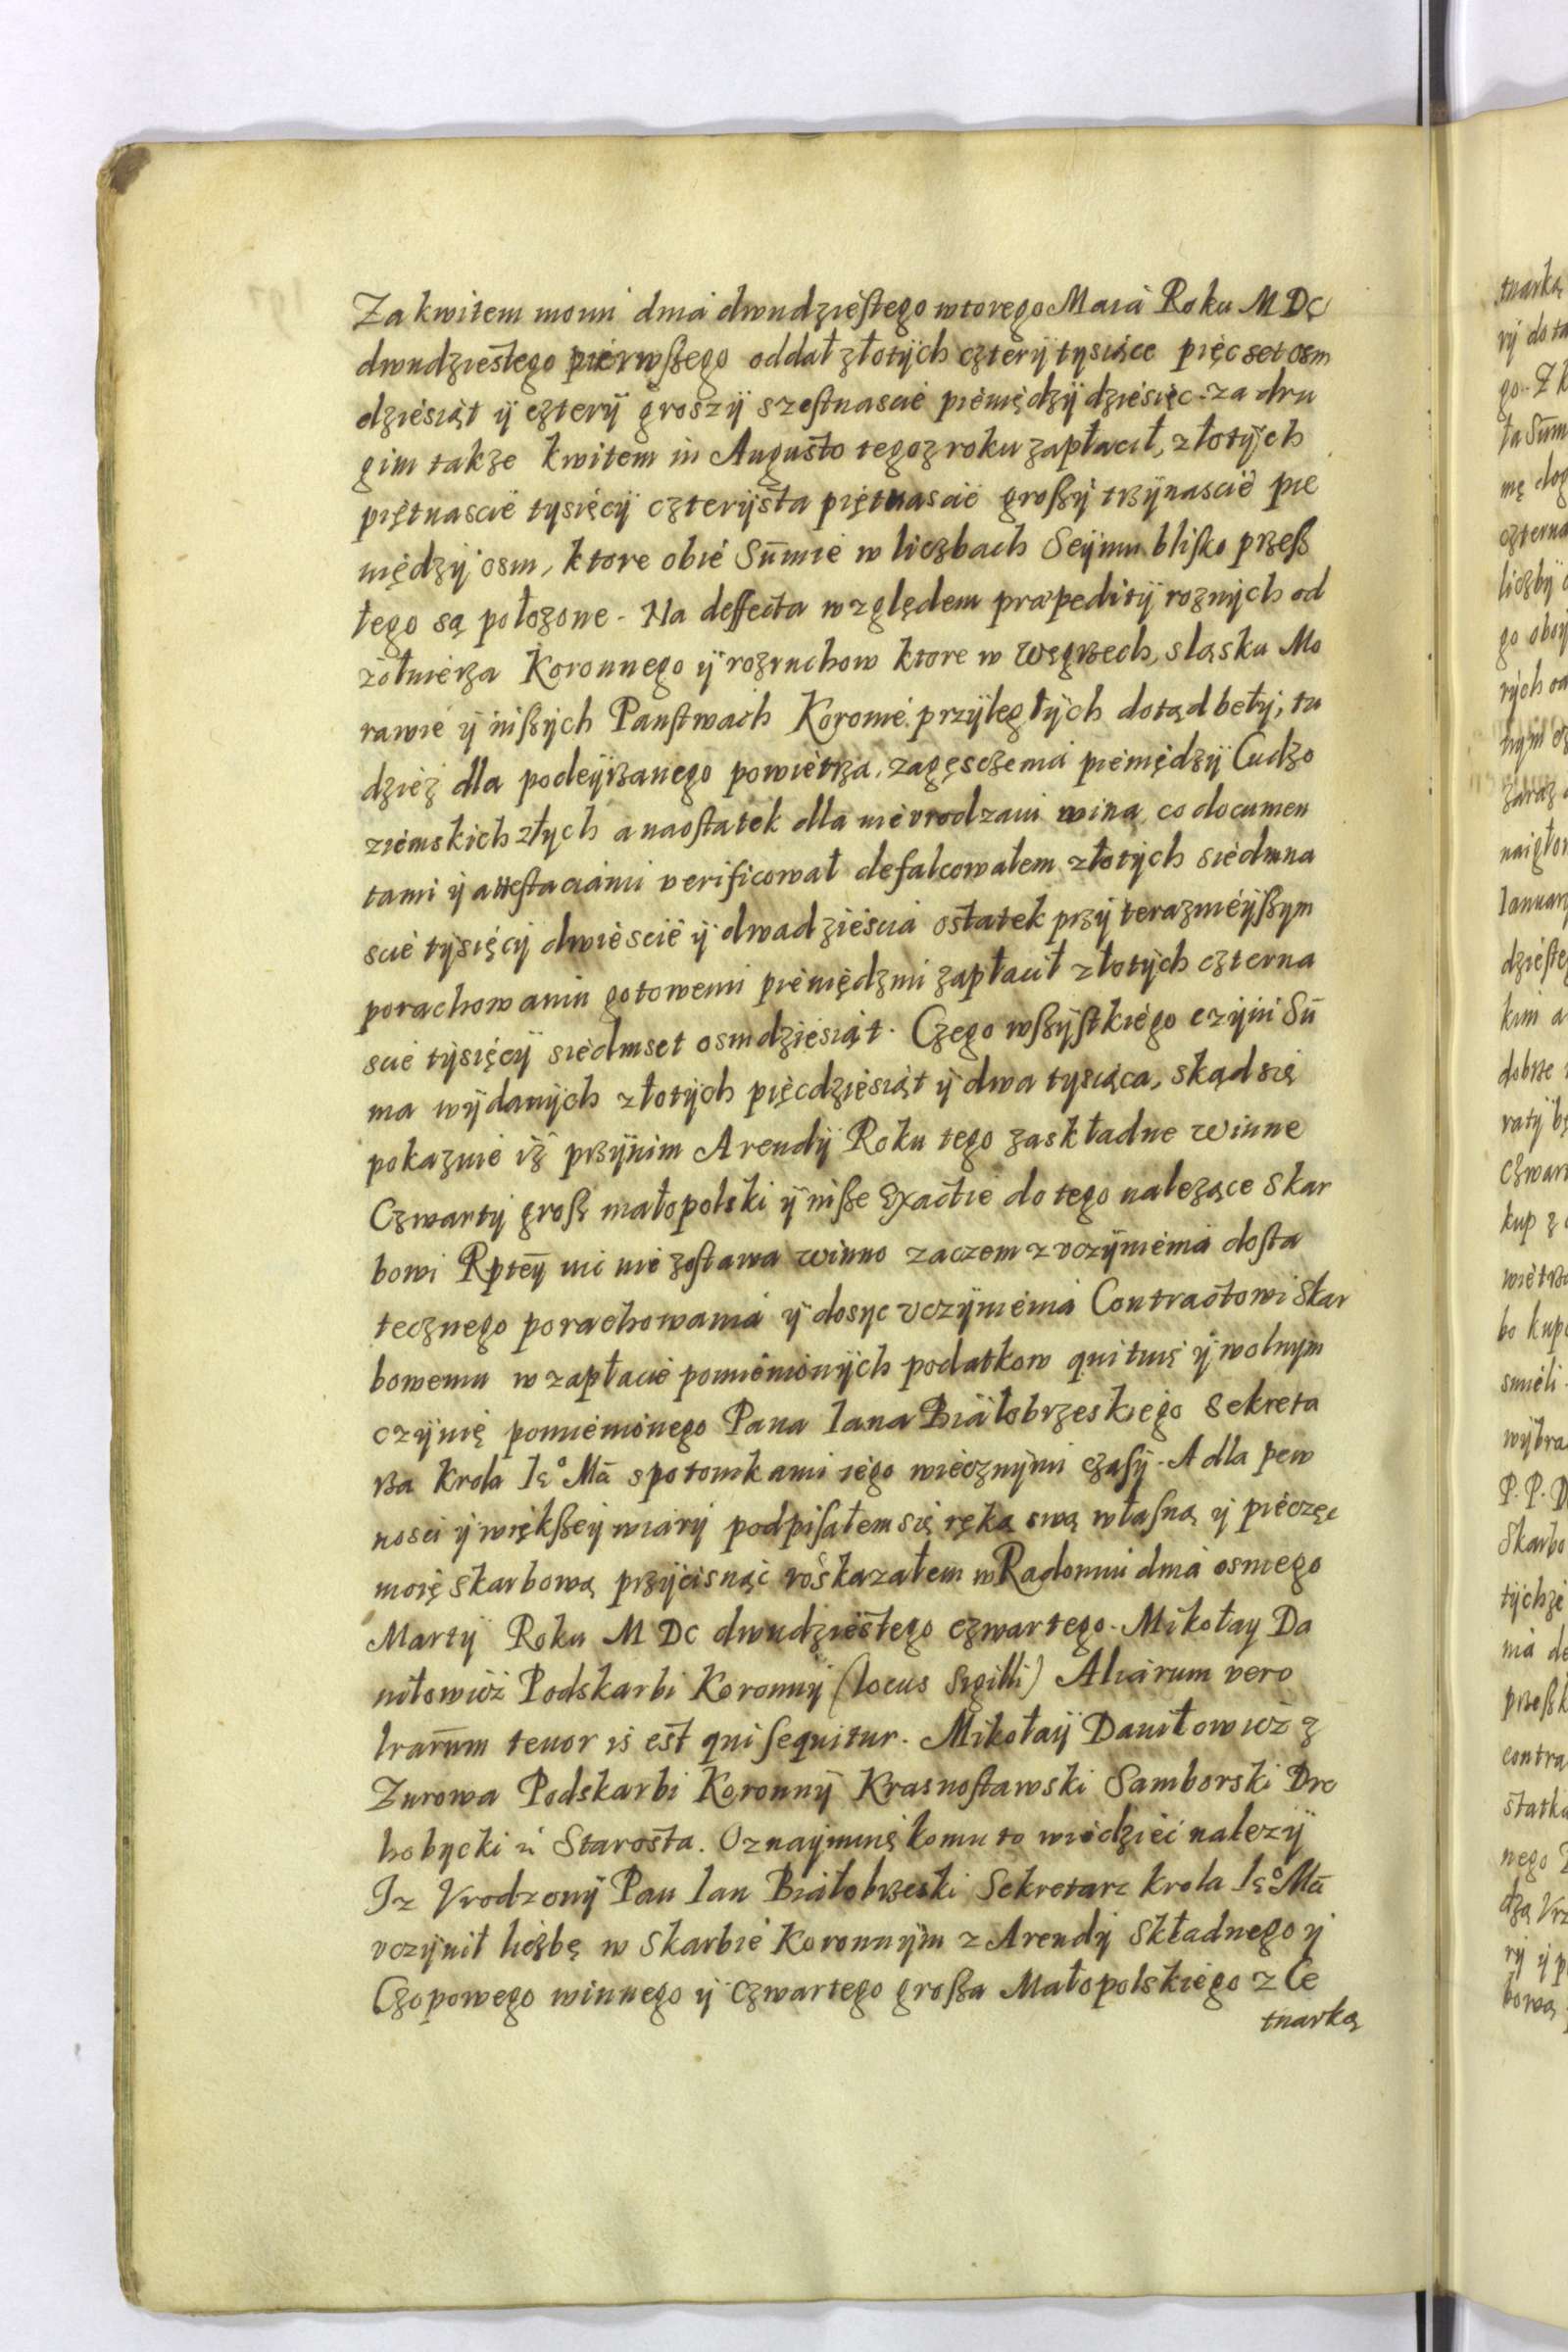 Za kwitem moim dnia dwudziestego wtorego Maia Roku M DC
dwudziestego pierwszego oddał złotych cztery tysiące pięcset osm
dziesiąt y cztery groszy szesnascie pieniędzy dziesięc. za dru
gim takze kwitem in Augusto tegoz roku zapłacił, złotych
piętnascie tysięcy czterysta piętnascie groszy trzynascie pie
niędzy osm, ktore obie Sum̄ie w liczbach Seymu blisko przesz
łego są połozone. Na deffecta względem præpedity roznych od
zołnierza Koronnego y rozruchow ktore w Węgrzech, slasku Mo
rawie y inszych Panstwach Koronie przyległych dotąd beły, tu
dziez dla podeyrzanego powietrza, zagęsczenia pieniędzy Cudzo
ziemskich złych a naostatek dla nievrodzaiu wina, co documen
tami y attestaciami verificował defalcowałem złotych siedmna
scie tysięcy dwiescie y dwadziescia ostatek przy teraznieyszym
porachowaniu gotowemi pieniędzmi zapłacił złotych czterna
scie tysięcy siedmset osmdziesiąt. Czego wszystkiego czyni Sum̄
ma wydanych złotych pięcdziesiąt y dwa tysiąca, skąd się
pokazuie iż przynim Arendy Roku tego zaskładne winne
Czwarty grosz małopolski y insze Exactie do tego nalezące Skar
bowi Rptey nic nie zostawa winno zaczem z vczynienia dosta
tecznego porachowania y dosyc vczynienia Contractowi Skar
bowemu w zapłacie pomienionych podatkow quituię y wolnym
czynię pomienionego Pana Iana Białobrzeskiego Sekreta
rza Krola Ieº Mci spotomkami iego wiecznymi czasy. A dla pew
nosci y większey wiary podpisałem się ręką swą własną y pieczęc
moię skarbową przycisnąc roskazałem w Radomiu dnia osmego
Marty Roku M DC dwudziestego czwartego. Mikołay Da
niłowicz Podskarbi Koronny (locus Sigilli) Aliarum vero
lrarum tenor is est qui sequitur. Mikołay Daniłowicz z
Zurowa Podskarbi Koronny Krasnostawski Samborski Dro
hobycki &c Starosta. Oznaymuię komu to wiedziec nalezy
Iz Vrodzony Pan Ian Białobrzeski Sekretarz krola Ieº Mci
vczynił liczbę w Skarbie Koronnym z Arendy Składnego y
Czopowego winnego y Czwartego grosza Małopolskiego z Ce
tnarką